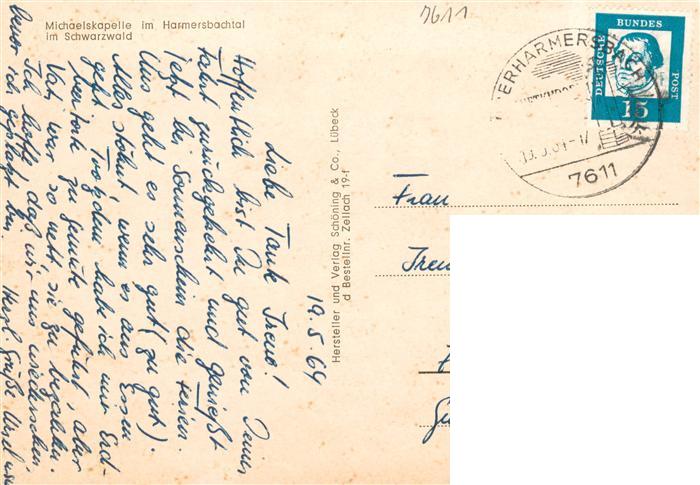 Michaelskapelle im Harmersbachtal
im Schwarzwald
7611
DEUTSCHE BUNDES POST
15
ERHARMERSBACH
7611
Hersteller und Verlag Schöning & Co., Lübeck
d Bestellnr. Zellach 19-f
19.5.64
Liebe Tante Irene!
Hoffentlich bist Du gut von Deiner
Fahrt zurückgekehrt und genießt
jetzt bei Sonnenschein die Ferien.
Uns geht es sehr gut (zu gut).
Alles stöhnt wenn es ans Essen
geht. Trotzdem habe ich mir Erd-
zu gemüte geführt, aber
Vati war so nett, sie zu bezahlen.
Ich hoffe daß wir uns wiedersehen
ich
Herzl. Grüße
Frau
Iren